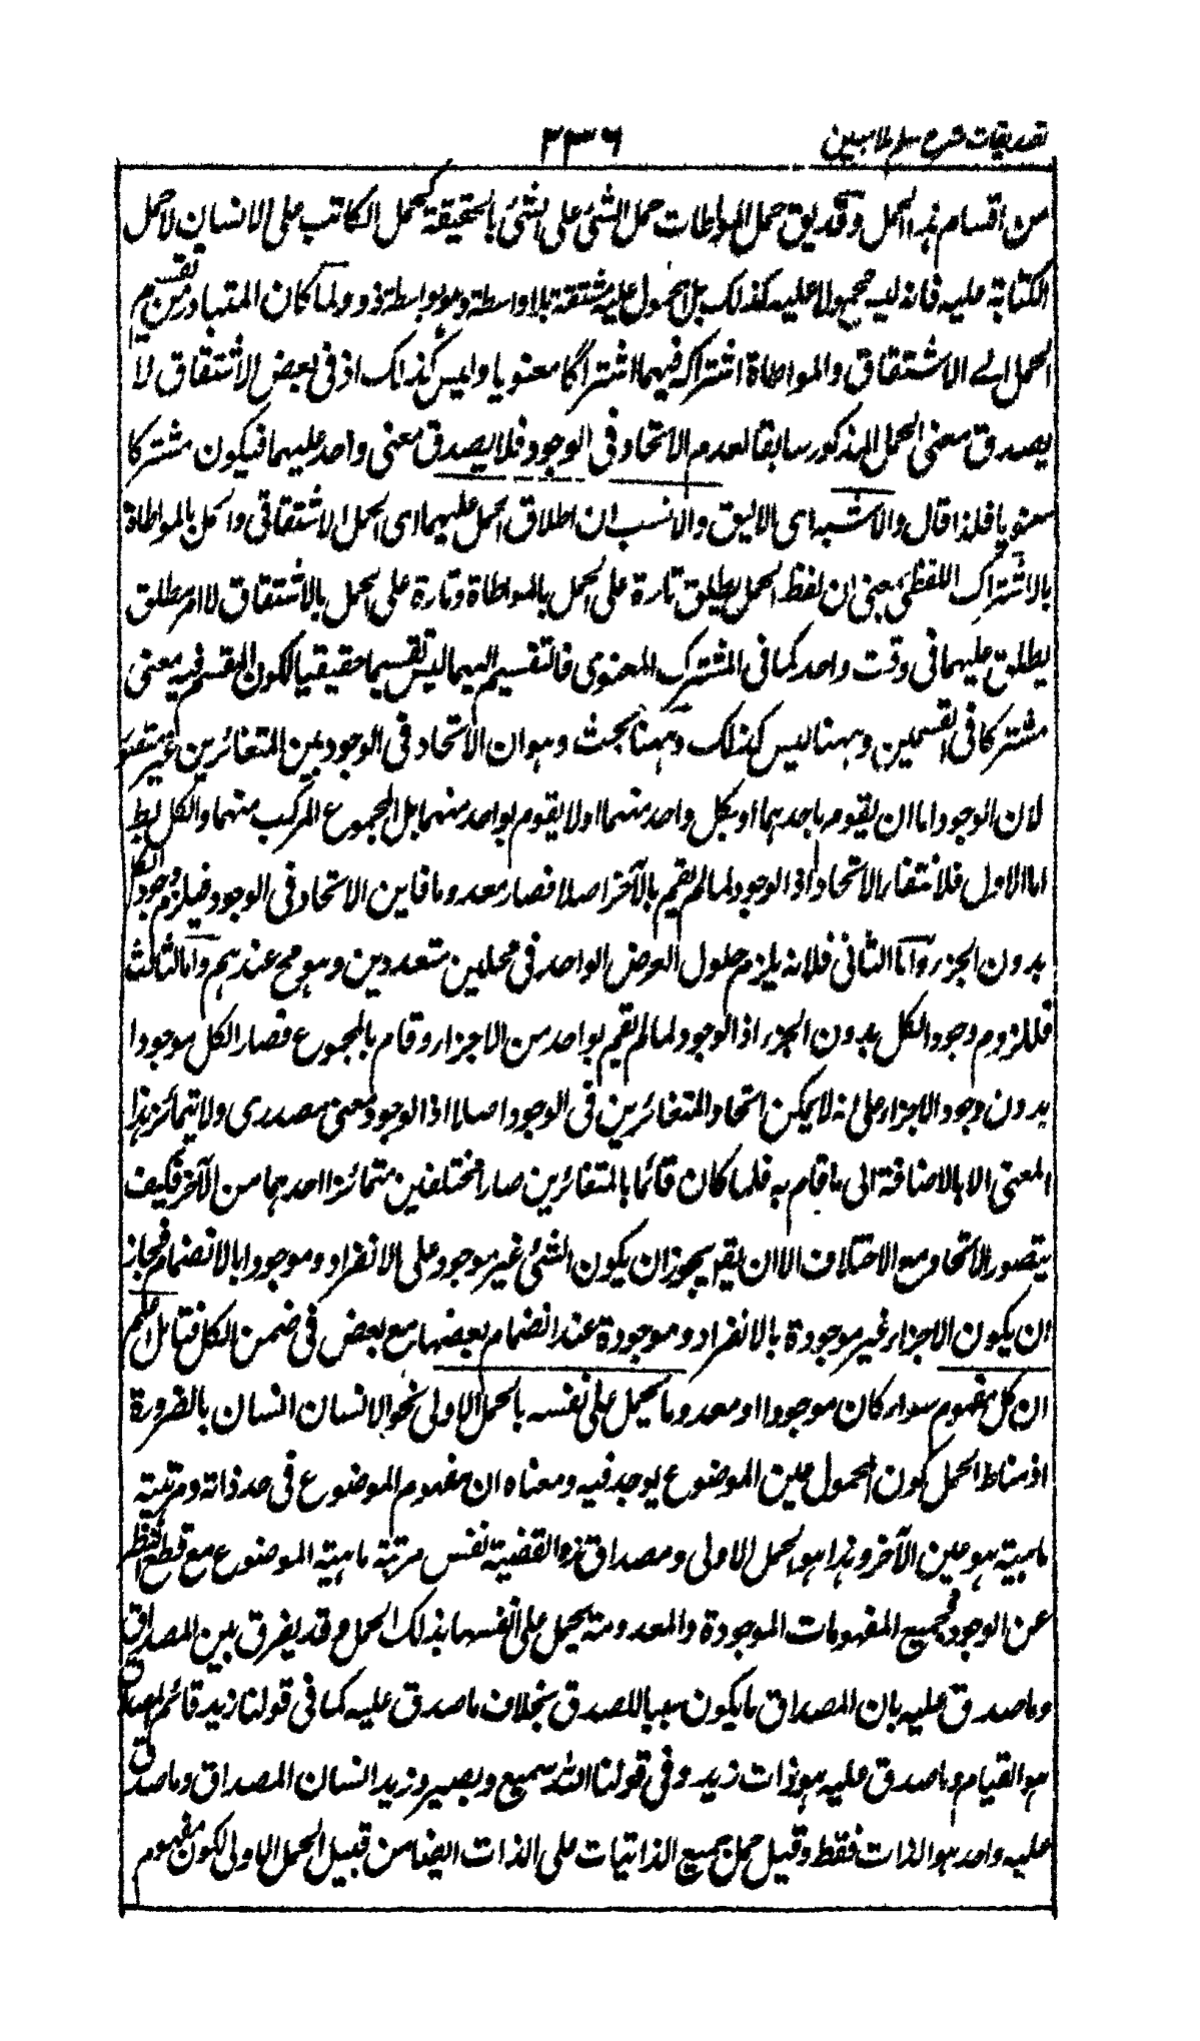 تصديقات شرح سلم ملا مبين ٣٣٦
من اقسام هذا الحمل وقد يق حمل المواطات حمل الشئ على شئ بالحقيقة كحمل الكاتب على الانسان لا حمل
الكتابة عليه فانه ليس محمولا عليه كذلك بل المحمول عليه مشتقة بلا واسطة وهو بواسطة ذو ولما كان المتبادر من تقسيم
الحمل الى الاشتقاق والمواطاة اشتراكه فيهما اشتراكا معنويا وليس كذلك اذ فى بعض الاشتقاق لا
يصدق معنى الحمل المذكور سابقا لعدم الاتحاد فى الوجود فلا يصدق معنى واحد عليهما فيكون مشتركا
معنويا فلذا قال والاشبه اى الاليق والانسب ان اطلاق الحمل عليهما اى الحمل الاشتقاقى والحمل بالمواطاة
بالاشتراك اللفظى بمعنى ان لفظ الحمل يطلق تارة على الحمل بالمواطاة وتارة على الحمل بالاشتقاق لا امر مطلق
يطلق عليهما فى وقت واحد كما فى المشترك المعنوى فالتقسيم اليهما ليس تقسيما حقيقيا لكون المقسم فيه معنى
مشتركا فى القسمين وههنا ليس كذلك وههنا بحث وهو ان الاتحاد فى الوجود بين المتغائرين غير متصور
لان الوجود اما ان يقوم باحدهما او بكل واحد منهما او لا يقوم بواحد منهما بل المجموع المركب منهما والكل بط
اما الاول فلانتفاء الاتحاد اذ الوجود لما لم يقم بالآخر اصلا فصار معدوما فاين الاتحاد فى الوجود فيلزم وجود الكل
بدون الجزء واما الثانى فلانه يلزم حلول العرض الواحد فى محلين متعددين وهو مح عندهم واما الثالث
فللزوم وجود الكل بدون الجزء اذ الوجود لما لم يقم بواحد من الاجزاء وقام بالمجموع فصار الكل موجودا
بدون وجود الاجزاء على انه لا يمكن اتحاد المتغائرين فى الوجود اصلا اذ الوجود معنى مصدرى ولا يتمائز هذا
المعنى الا بالاضافة الى ما قام به فلما كان قائما بالمتغائرين صار مختلفين متمائزا احدهما من الآخر فكيف
يتصور الاتحاد مع الاختلاف الا ان يقر يجوز ان يكون الشئ غير موجود على الانفراد وموجودا بالانضمام فجاز
ان يكون الاجزاء غير موجودة بالانفراد وموجودة عند انضمام بعضها مع بعض فى ضمن الكل فتامل اعلم
ان كل مفهوم سواء كان موجودا او معدوما يحمل على نفسه بالحمل الاولى نحو الانسان انسان بالضرورة
اذ مناط الحمل كون المحمول عين الموضوع يوجد فيه ومعناه ان مفهوم الموضوع فى حد ذاته ومرتبته
ماهيته هو عين الآخر وهذا هو الحمل الاولى ومصداق هذه القضية نفس مرتبة ماهية الموضوع مع قطع النظر
عن الوجود فجميع المفهومات الموجودة والمعدومة يحمل على انفسها بذلك الحمل وقد يفرق بين المصداق
وما صدق عليه بان المصداق ما يكون سببا للصدق بخلاف ما صدق عليه كما فى قولنا زيد قائم المصداق
هو القيام وما صدق عليه هو ذات زيد وفى قولنا الله سميع وبصير وزيد انسان المصداق وما صدق
عليه واحد هو الذات فقط وقيل حمل جميع الذاتيات على الذات ايضا من قبيل الحمل الاولى لكون مفهوم